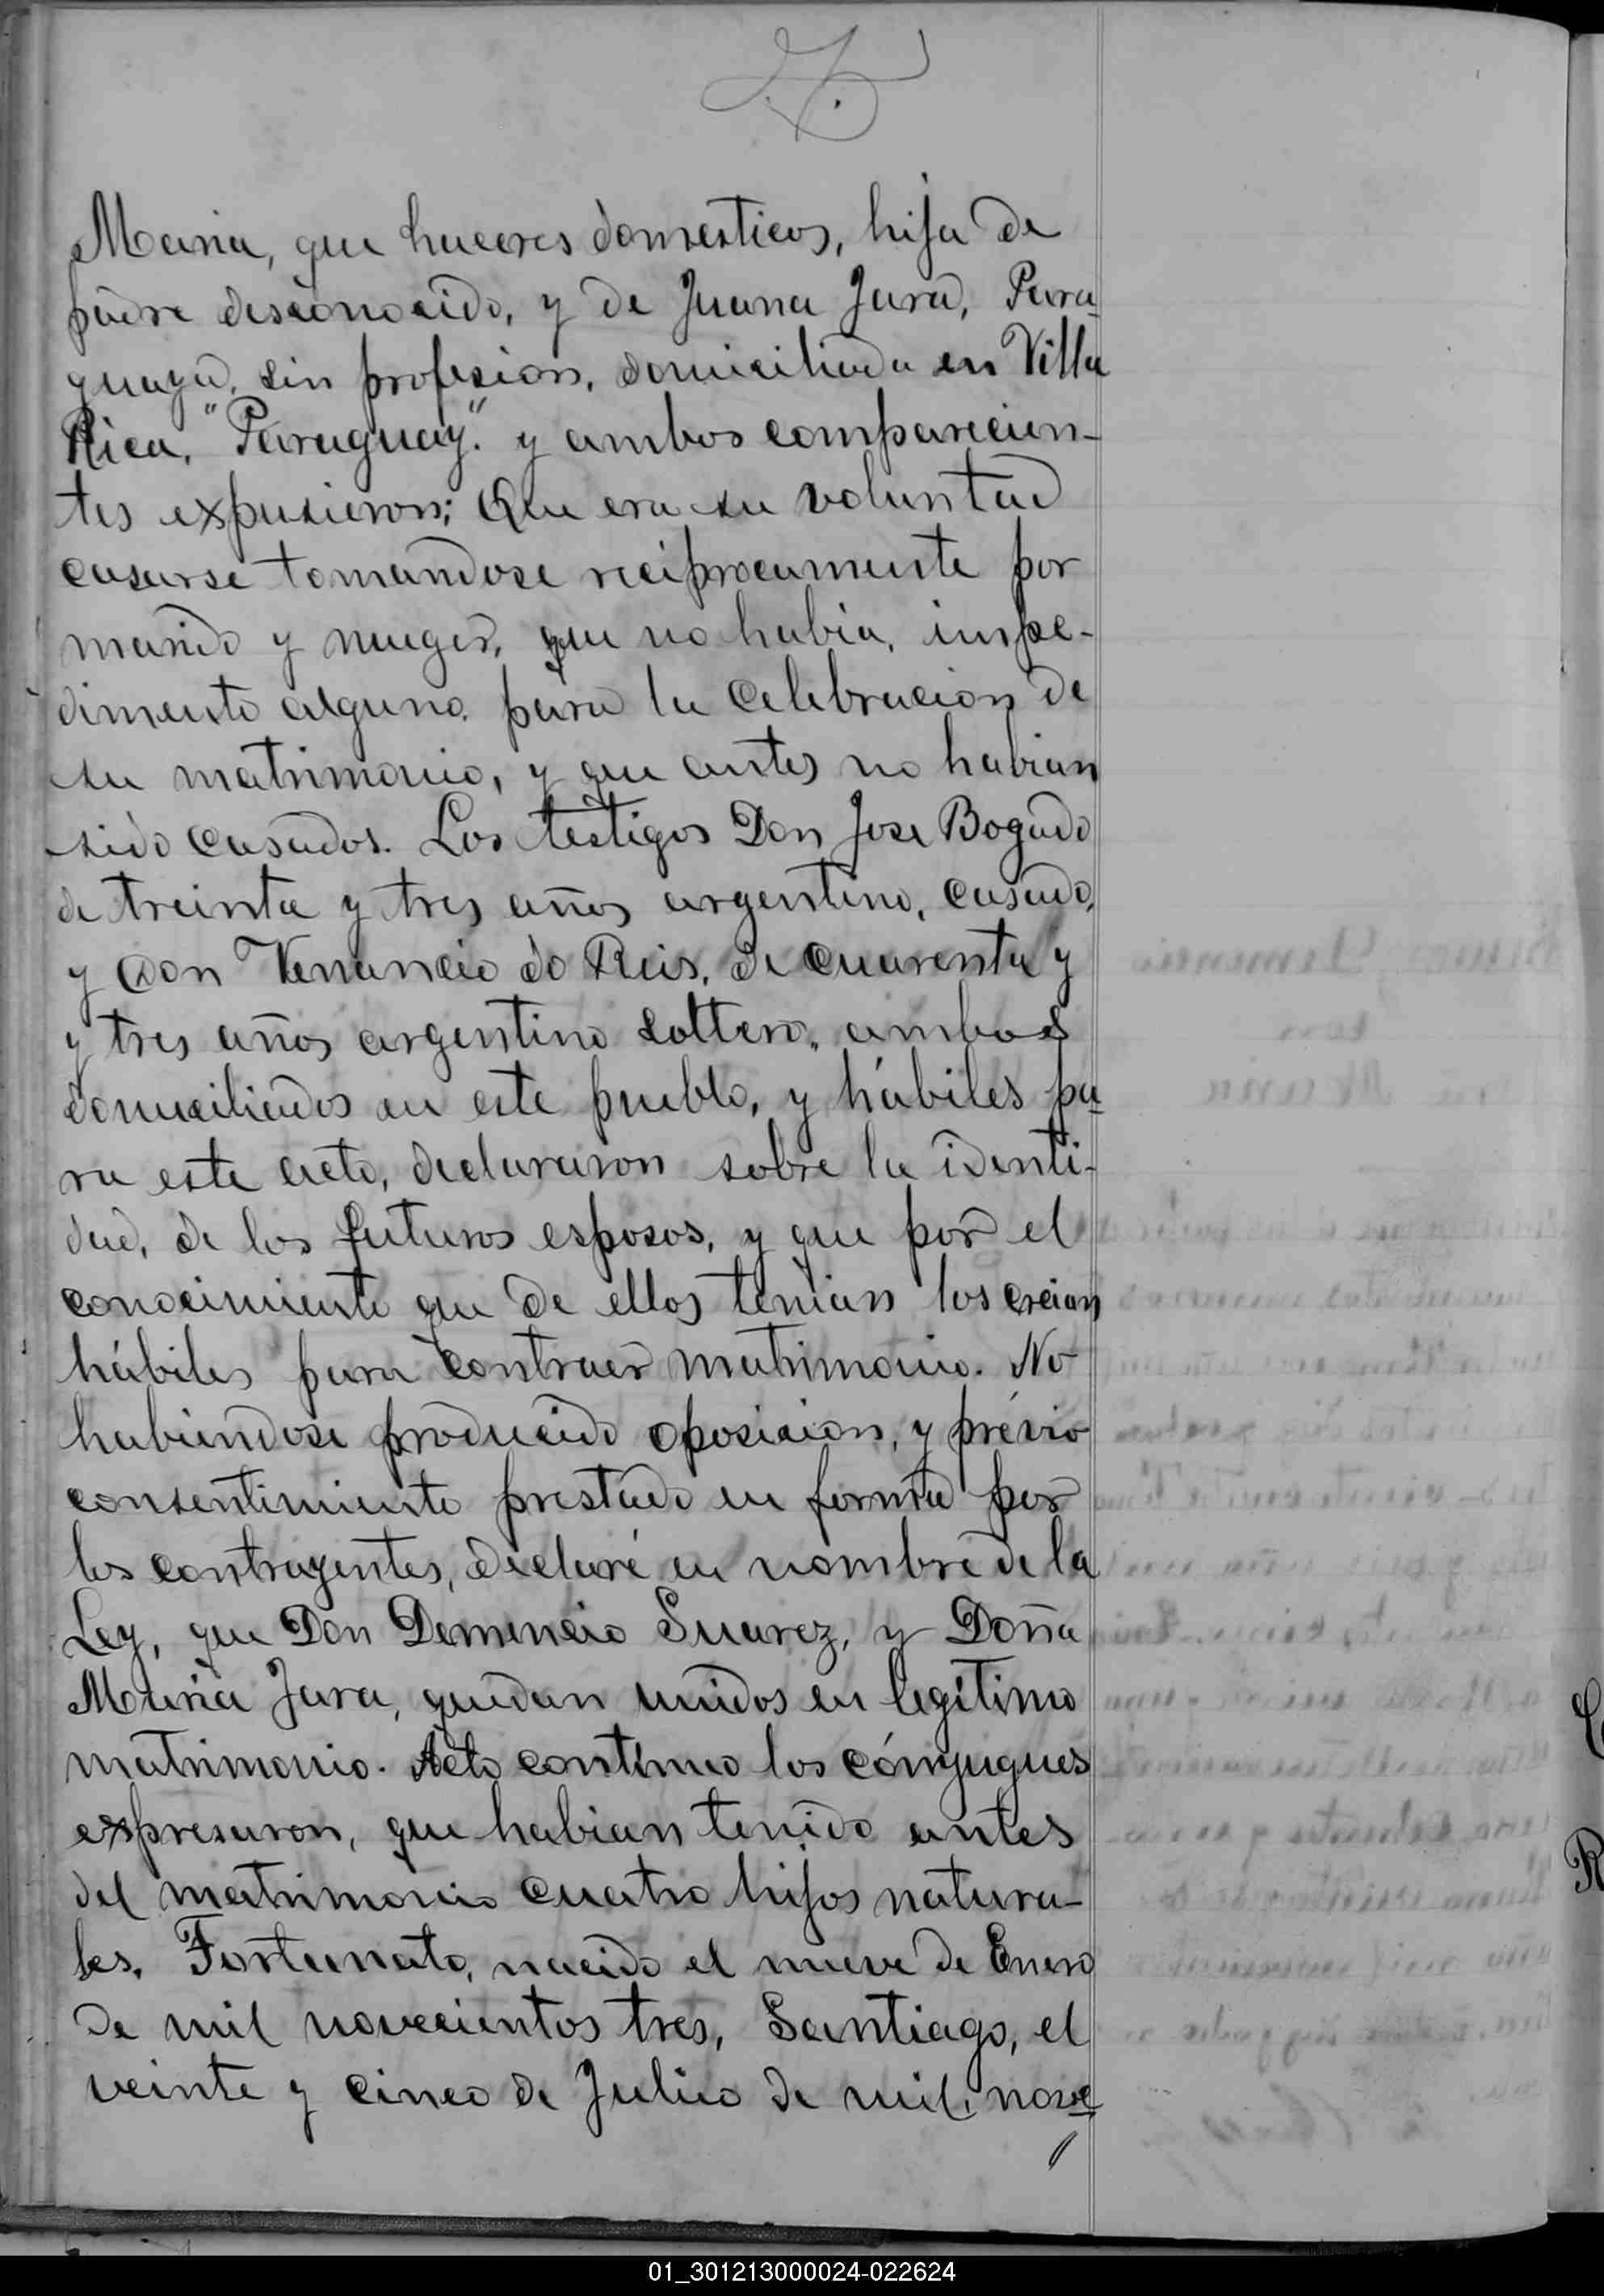 Maria, que haceres domesticos, hija de
padre desconocido, y de Juana Jara, Para-
guaya, sin profesion, domiciliada en Villa
Rica, "Paraguay." y ambos comparecien-
tes expusieron; Que era su voluntad
casarse tomandose reciprocamente por
marido y muger, que no habia, impe-
dimento alguno, para la Celebracion de
su matrimonio, y que antes no habian
sido casados. Los testigos Don Jose Bogado
de treinta y tres años argentino, casado,
y Don Venancio do Reis, de cuarenta y
y tres años argentino soltero, ambos
domiciliados en este pueblo, y hábiles pa-
ra este acto, declararon sobre la identi-
dad, de los futuros esposos, y que por el
conocimiento que de ellos tenian los creian
hábiles para contraer matrimonio. No
habiendose producido oposicion, y prévio
consentimiento prestado en forma por
los contrayentes, declaré en nombre de la
Ley, que Don Demencio Suarez, y Doña
Maria Jara, quedan unidos en legítimo
matrimonio. Acto continuo los cónyugues
expresaron, que habian tenido antes
del matrimonio cuatro hijos natura-
les. Fortunato, nacido el nueve de Enero
de mil novecientos tres, Santiago, el
veinte y cinco de Julio de mil, nove
01_301213000024-022624